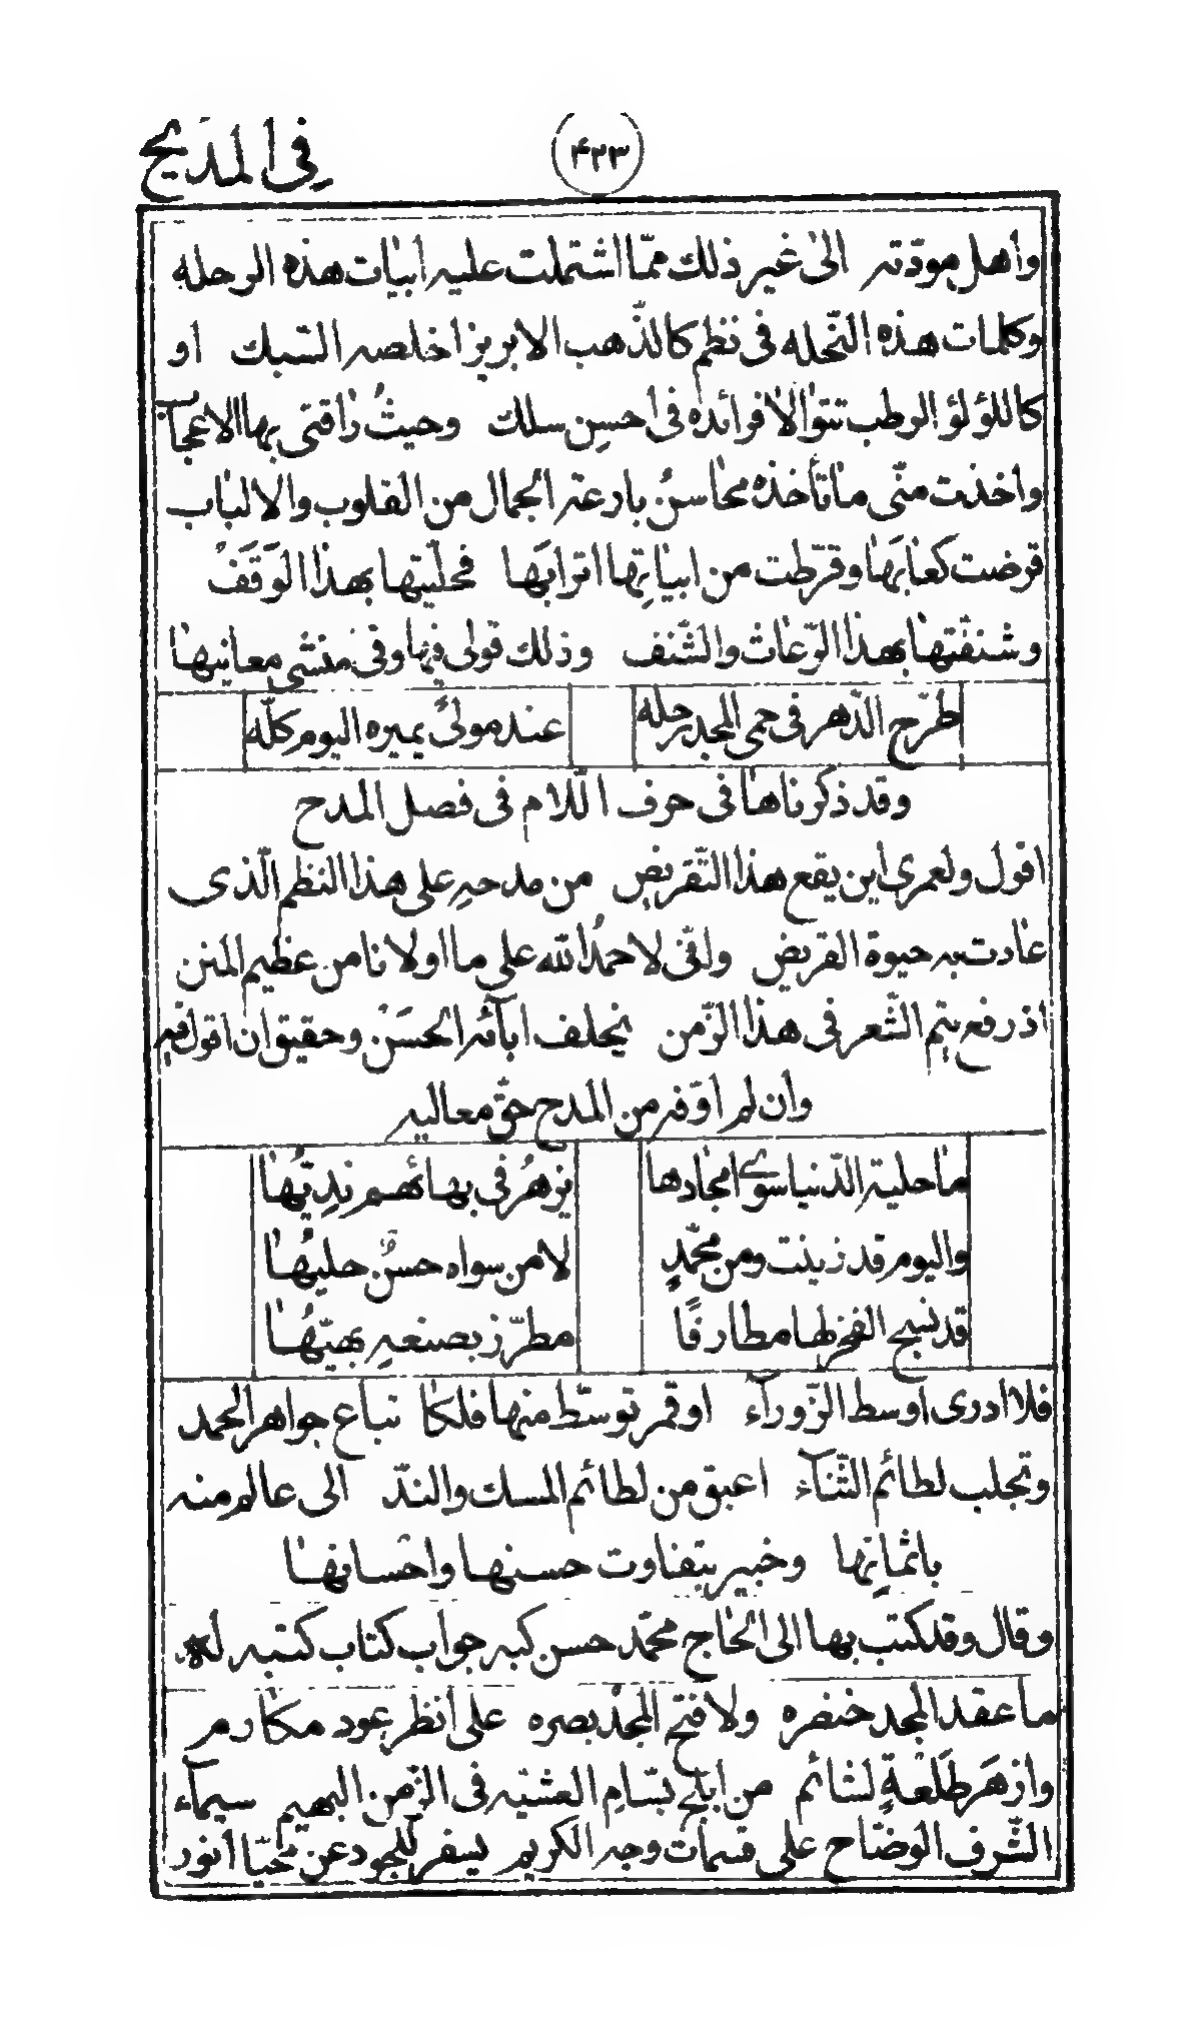 في المديح
۴۲۳
واهل مودّته الىٰ غير ذلك ممّا اشتملت عليه ابيات هذه الرحله
وكلمات هذه النّحله فى نظم كالذّهب الابريز اخلصه السّبك او
كاللؤلؤ الرطب تتوالا فرائده فى احسن سلك وحيثُ راقتى بها الاعجاب
واخذت منّى ما تأخذه محاسنُ بارعة الجمال من القلوب والالباب
قرضت كعابَها وقرّطت من ابياتِها اترابَها فحلّيتها بهذا الوَقَفْ
وشنفّتها بهذا الرّعاث والشّنف وذلك قولى فيها وفى منشى معانيها
طرّح الدّهر فى حمى المجد رحله
عند مولىً يميره اليوم كلّه
وقد ذكرناها فى حرف اللّام فى فصل المدح
اقول ولعمرى اين يقع هذا التّقريض من مدحهِ على هذا النظم الّذى
عادت به حيوة القريض ولقّى لاحمدُ الله على ما اولانا من عظيم المنن
اذ رفع يتم الشّعر فى هذا الزّمن بخلف ابآئه الحسَنْ وحقيق ان اقول فيه
وان لم اوّفه من المدح حقّ معاليه
ما حلية الدّنيا سوى امجادها
يزهرُ فى بهائهم نديّها
واليوم قد زينت ومن محمّدٍ
لا من سواه حسنٌ حليها
قد نسج الفخر لها مطارفًا
مطرّز بصنعهِ بهيّها
فلا ادرى اوسط الزّورآء او قمر توسّط منها فلكا تباع جواهر الحمد
وتجلب لطائم الثّنآء اعبق من لطائم المسك والندّ الى عالم منه
باثمانِها وخبير بتفاوت حسنها واحسانها
وقال وقد كتب بها الى الحاج محمّد حسن كبه جواب كتاب كتبه له
ما عقد المجد خنضره ولا فتح المجد بصره على انظر عود مكارم
وازهَر طَلعةٍ لشائم من ابلج بسّامِ العشيّه فى الزّمن البهيم سيمآء
الشّرف الوضّاح على قسمات وجه الكريم يسفر للجود عن محيّا انور